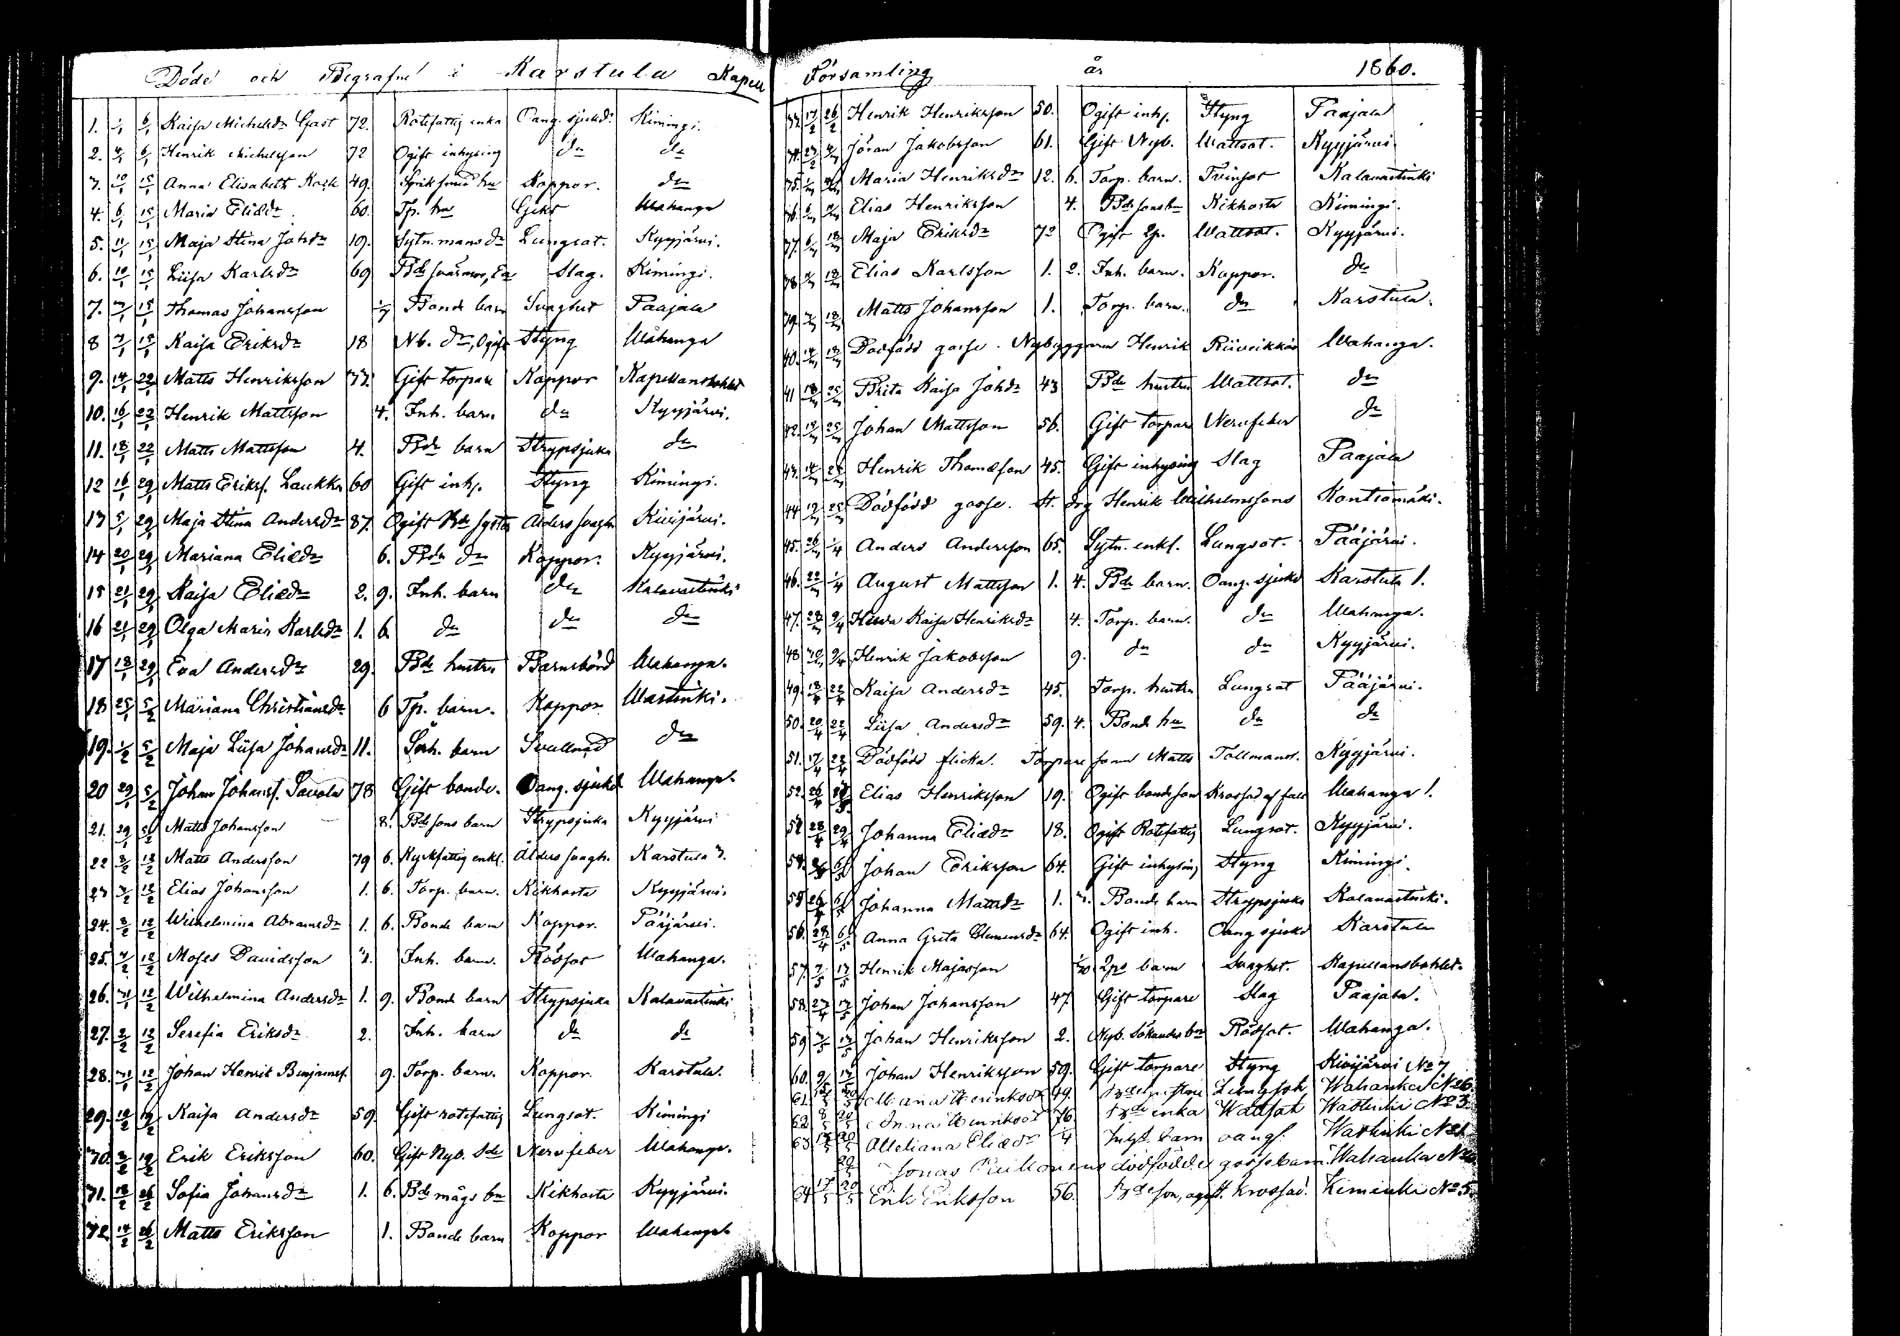 Döde och Begrafne i Karstula Kapell
1. 1/1 6/1 Kaisa Michelsdr Gast 72. Rotefattig enka Oang. sjukd. Kimingi.
2. 4/1 6/1 Henrik Michelsson 72 Ogift inhysing do do
3. 10/1 15/1 Anna Elisabeth 49. Koppor. do
4. 6/1 15/1 Maria Eliædr 60. Tp. hu Gikt Wahanga
5. 11/1 15/1 Maja Stina Johdr 19. Sytn. mans dr Lungsot. Kyyjärvi.
6. 10/1 15/1 Liisa Karlsdr 69 Slag. Kimingi.
7. 7/1 15/1 Thomas Johansson Bonde barn Svaghet Paajala
8 7/1 15/1 Kaisa Eriksdr 18 Nb. dr, Ogift Styng Wahanga
9. 14/1 22/1 Matts Henriksson 33. Gift torpare Koppor Kapellansbohlet
10. 16/1 22/1 Henrik Mattsson 4. Inh. barn do Kyyjärvi.
11. 18/1 22/1 Matts Mattsson 4. Bde barn Strypsjuka do
12 16/1 29/1 Matts Eriksf. Laukka 60 Gift inhs. Styng Kimingi.
13 5/1 29/1 Maja Stina Andersdr 87. Ogift Bde syster Ålders svagh. Kivijärvi.
14 20/1 29/1 Mariana Eliædr 6. Bde dr Koppor. Kyyjärvi.
15 21/1 29/1 Kaisa Eliædr 2. 9. Inh. barn do Kalavastinki
16 21/1 29/1 Olga Maria Karlsdr 1. 6. do do do
17 18/1 29/1 Eva Andersdr 29. Bde hustru Barnsbörd Wahanga.
18 25/1 5/2 Mariana Christiansdr 6 Tp. barn. Koppor Wastinki.
19. 1/2 5/2 Maja Liisa Johansdr 11. Inh. barn do
20 29/1 5/2 Johan Johansf. Savola 78 Gift bonde. Oang. sjukd Wahanga.
21. 29/1 5/2 Matts Johansson 8. Bde sons barn Strypsjuka Kyyjärvi
22 2/2 12/2 Matts Andersson 79 6. Kyrkfattig enkl. Ålders svagh. Karstula 3.
23 3/2 12/2 Elias Johansson 1. 6. Torp. barn. Kikhosta Kyyjärvi.
24. 2/2 12/2 Wilhelmina Abramsdr 1. 6. Bonde barn Koppor. Pääjärvi.
25. 4/2 12/2 Moses Davidsson 3. Inh. barn. Rödsot Wahanga.
26. 31/1 12/2 Wilhelmina Andersdr 1. 9. Bonde barn Strypsjuka Kalavastinki
27. 2/2 12/2 Serefia Eriksdr 2. Inh. barn do do
28. 31/1 12/2 Johan Henrik Benjamsf. 9. Torp. barn. Koppor. Karstula.
29. 12/2 19/2 Kaisa Andersdr 59. Gift rotefattig Lungsot. Kimingi
30. 2/2 19/2 Erik Eriksson 60. Gift Nyb. Nervfeber Wahanga.
31. 18/2 26/2 Sofia Johansdr 1. 6. Bde mågs bn Kikhosta Kyyjärvi.
32 14/2 26/2 Matts Eriksson 1. Bonde barn Koppor Wahanga
Församling år 1860.
33. 17/2 26/2 Henrik Henriksson 50. Ogift inhs. Styng Paajala
34. Jöran Jakobsson 61. Gift Nyb. Wattsot. Kyyjärvi
35. Maria Henriksdr 12. 6. Torp. barn. Tvinsot Kalavastinki
36. Elias Henriksson 4. Bde sons bn Kikhosta Kimingi.
37. Maja Eriksdr 72 Wattsot. Kyyjärvi.
38 Elias Karlsson 1. 2. Inh. barn. Koppor. do
39. Matts Johansson 1. Torp. barn. do Karstula.
40. Dödfödd gosse. Nybyggaren Henrik Wahanga.
41 18/3 25/3 Brita Kaisa Johdr 43 Bde hustru Wattsot. do
42. 19/3 25/3 Johan Mattsson 56. Gift torpare Nervfeber do
43. Henrik Thomasson 45. Gift inhysing Slag Paajala
44 Dödfödd gosse. St. drg Henrik Wilhelmssons Kontiomäki.
45. 26/3 1/4 Anders Andersson 65. Sytn. enkl. Lungsot. Pääjärvi.
46. 22/3 1/4 August Mattsson 1. 4. Bde barn. Oang. sjukd Karstula 1.
47. Kaisa Henriksdr 4. Torp. barn. do Wahanga.
48 Henrik Jakobsson 9. do do Kyyjärvi.
49. 18/4 22/4 Kaisa Andersdr 45. Torp. hustru Lungsot Pääjärvi.
50. 20/4 22/4 Liisa Andersdr 59. 4. Bonde hu do do
51. 17/4 22/4 Dödfödd flicka. Torpare sonen Matts Tollmans. Kyyjärvi.
52. Elias Henriksson 19. Ogift bondeson Krossad af fall Wahanga 1.
53 28/4 29/4 Johanna Eliædr 18. Ogift Rotefattig Lungsot. Kyyjärvi.
54. Johan Eriksson 64. Gift inhysing Styng Kimingi.
55 26/4 6/5 Johanna Mattsdr 1. 3. Bonde barn Strypsjuka Kalavastinki.
56. 28/4 6/5 Anna Greta Clemensdr 64. Ogift inh. Oang sjukd Karstula
57. 7/5 13/5 Henrik Majasson barn Svaghet. Kapellansbohlet.
58. 27/4 13/5 Johan Johansson 47. Gift torpare Slag Paajala.
59 7/5 13/5 Johan Henriksson 2. Nyb. Sökandes bn Rödsot. Wahanga.
60. 9/5 13/5 Johan Henriksson 59. Gift torpare Styng Kivijärvi No 7
61. Maria Henriksdr 49. Lungsot Wahanka No 6.
62 Anna Henriksdr 76. Bde enka Wattsot Wastinki No 3.
63 Meliana Eliædr 4 Inhs. barn oang. Wastinki No 1
Jonas dödfödde gossebarn. Wahanka No
64 17/5 20/5 Erik Eriksson 56. Bdeson, ogift. krossad. Kiminki No 5